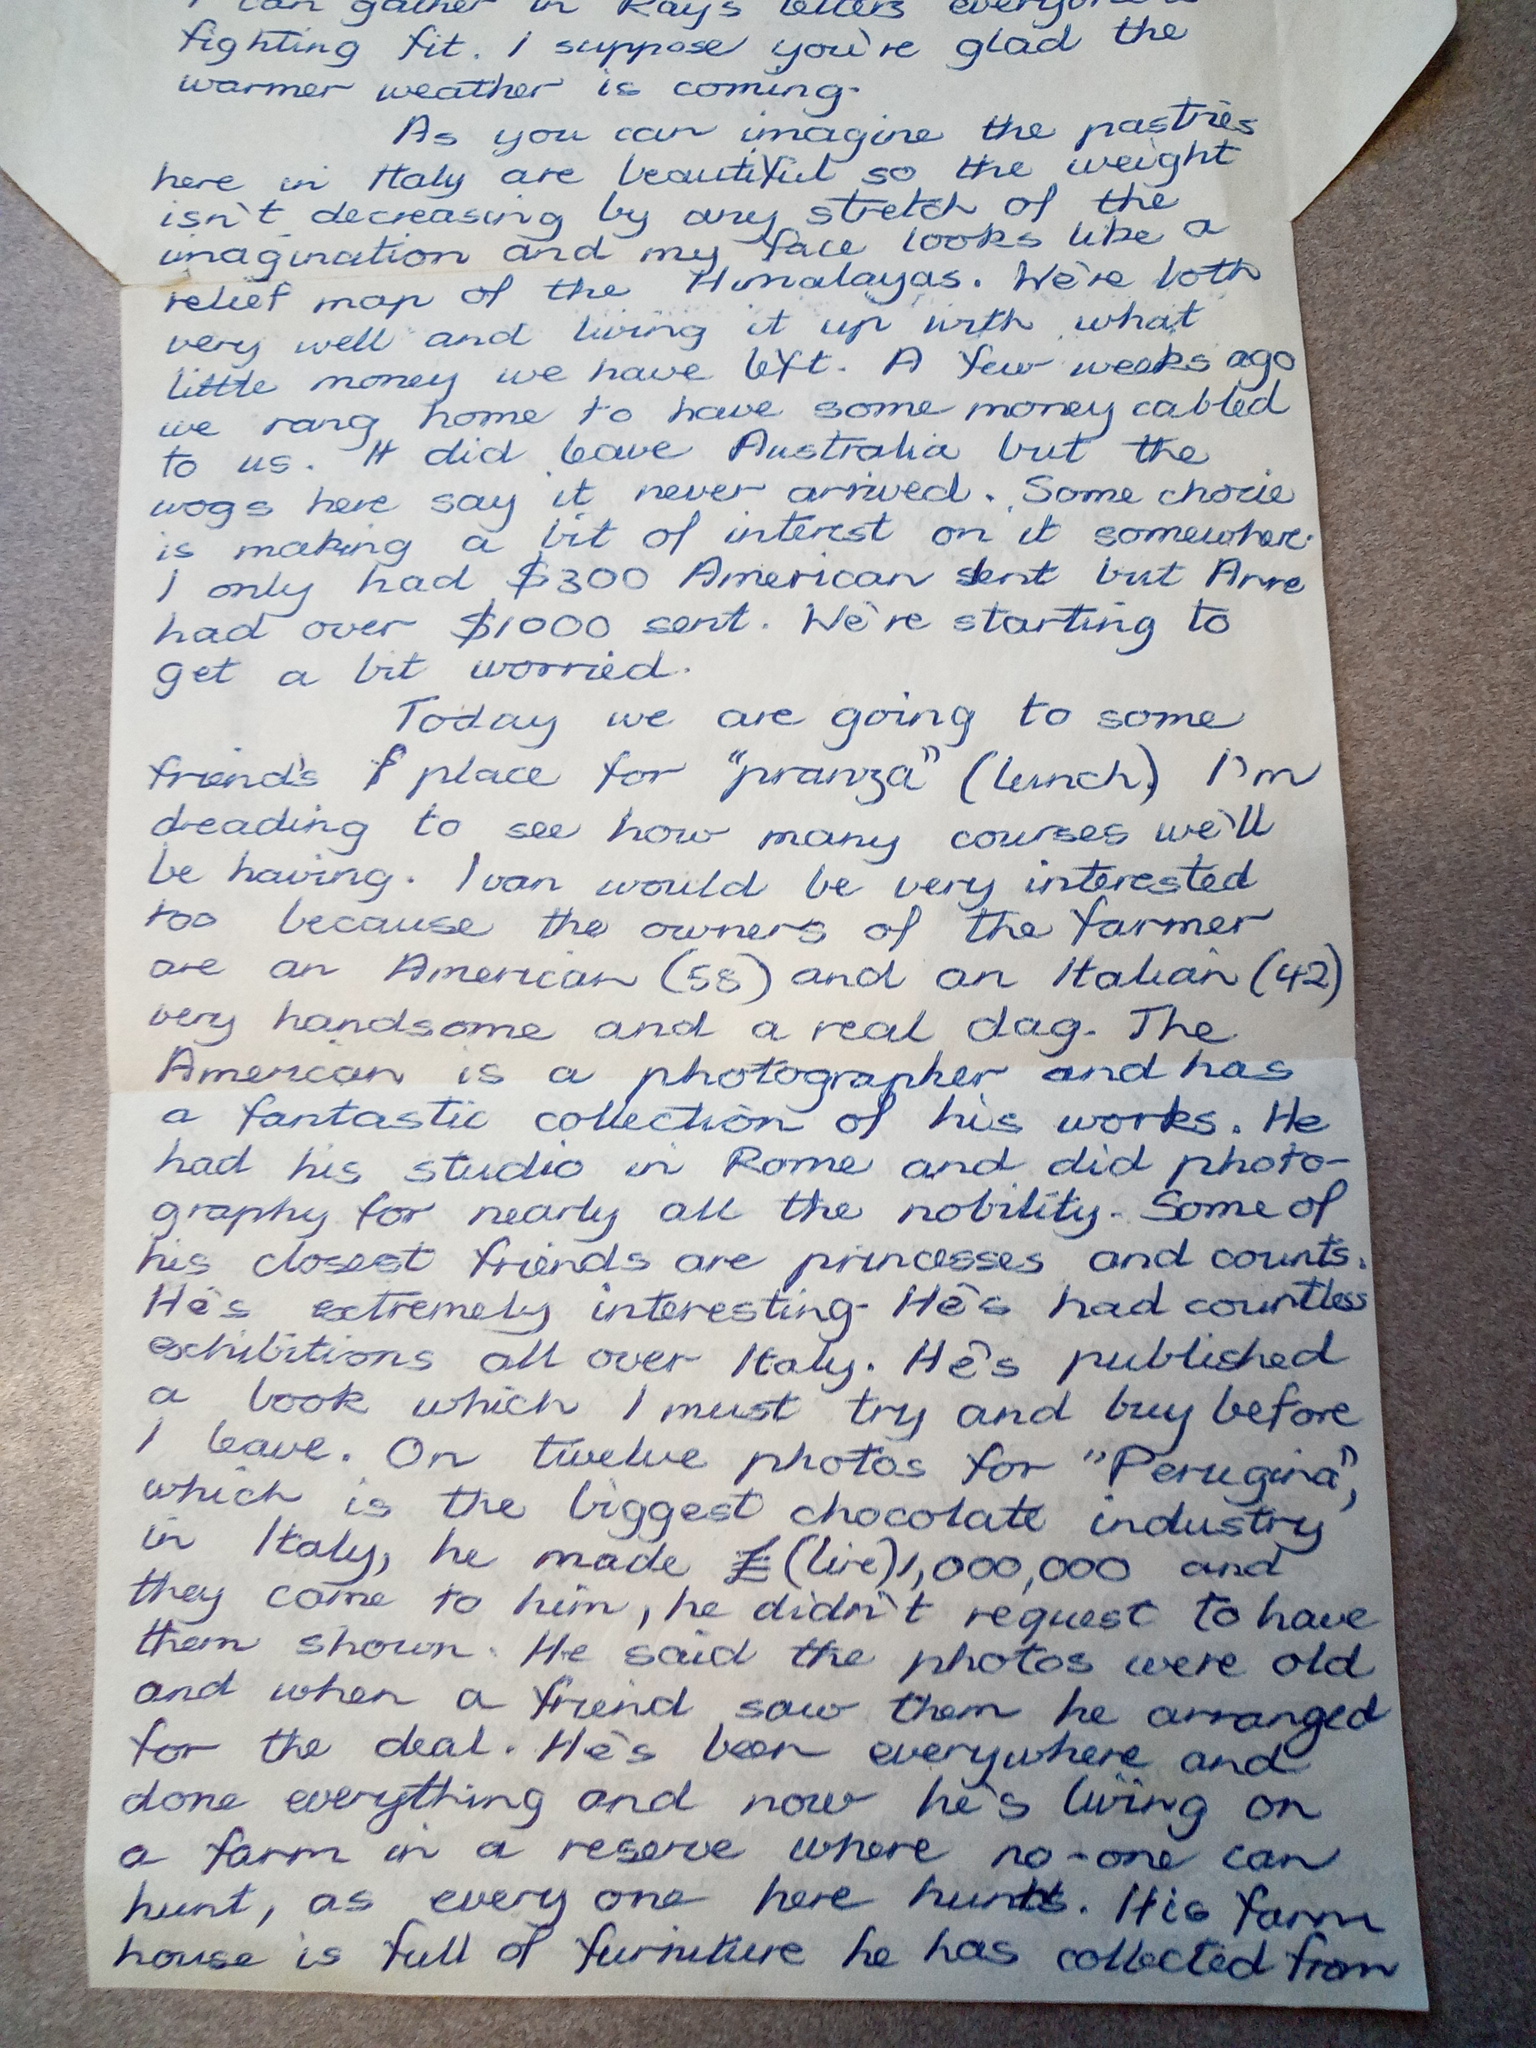 I can gather in Kay's letters everyone is
fighting fit. I suppose you're glad the
warmer weather is coming.
As you can imagine the pastries
here in Italy are beautiful so the weight
isn't decreasing by any stretch of the
imagination and my face looks like a
relief map of the Himalayas. We're both
very well and living it up with what
little money we have left. A few weeks ago
we rang home to have some money cabled
to us. It did leave Australia but the
wogs here say it never arrived. Some chocie
is making a bit of interest on it somewhere.
I only had $300 American sent but Anne
had over $1000 sent. We're starting to
get a bit worried.
Today we are going to some
friend's place for "pranza" (lunch) I'm
dreading to see how many courses we'll
be having. Ivan would be very interested
too because the owners of the farmer
are an American (58) and an Italian (42)
very handsome and a real dag. The
American is a photographer and has
a fantastic collection of his works. He
had his studio in Rome and did photo-
graphy for nearly all the nobility. Some of
his closest friends are princesses and counts.
He's extremely interesting. He's had countless
exhibitions all over Italy. He's published
a book which I must try and buy before
I leave. On twelve photos for "Perugina",
which is the biggest chocolate industry
in Italy, he made £ (lire) 1,000,000 and
they came to him, he didn't request to have
them shown. He said the photos were old
and when a friend saw them he arranged
for the deal. He's been everywhere and
done everything and now he's living on
a farm in a reserve where no-one can
hunt, as every one here hunts. His farm
house is full of furniture he has collected from